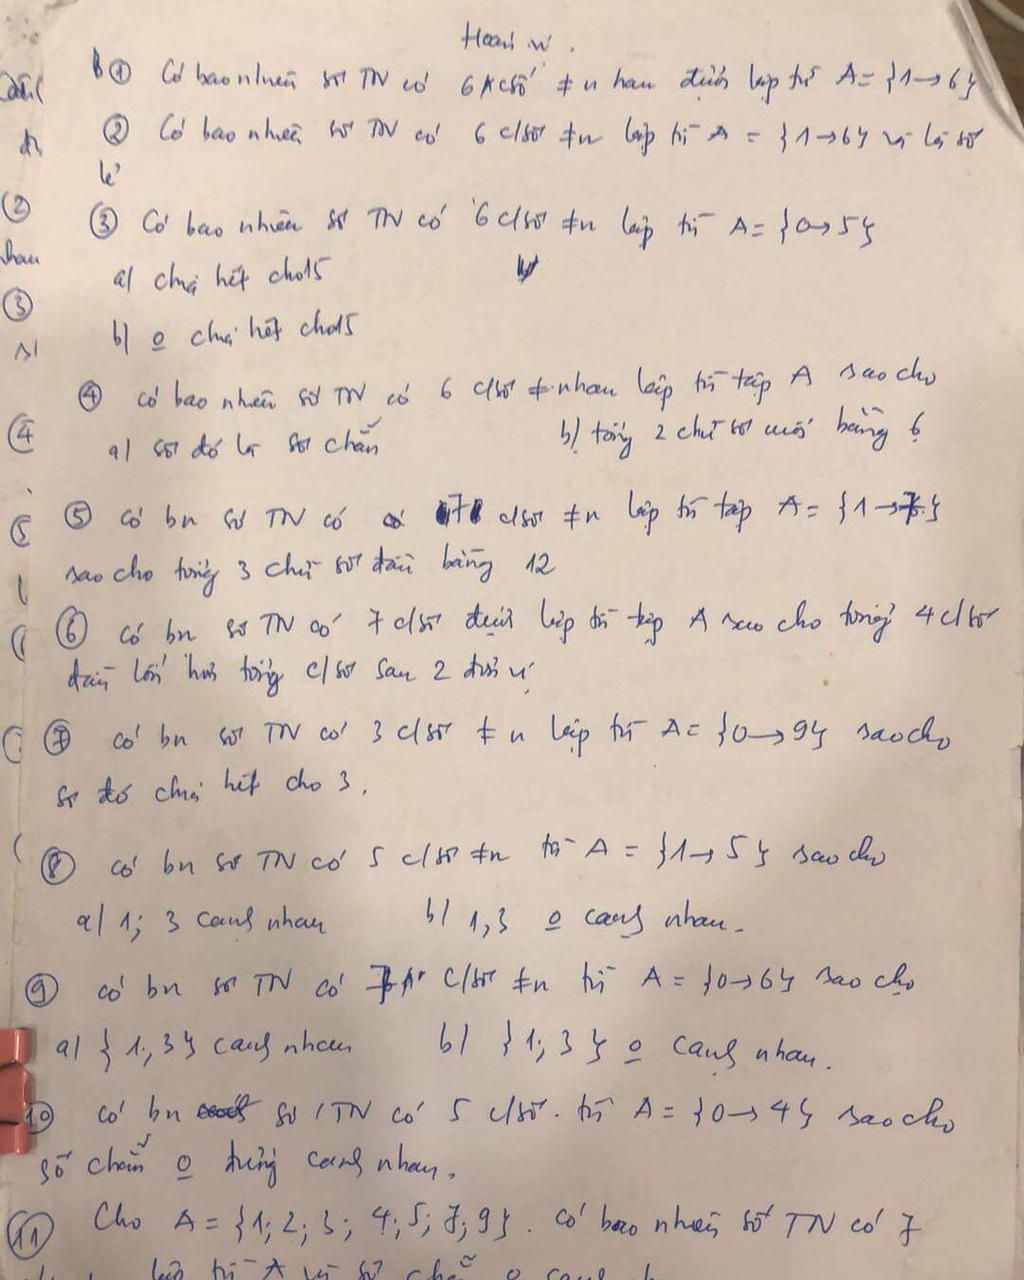 Hoán vị.
B① Có bao nhiêu số TN có 6 c/số ≠ nhau được lập từ A = {1→6}
② Có bao nhiêu số TN có 6 c/số ≠n lập từ A = {1→6} và là số
lẻ
③ Có bao nhiêu số TN có 6 c/số ≠n lập từ A = {0→5}
a) chia hết cho 15
b) o chia hết cho 15
④ có bao nhiêu số TN có 6 c/số ≠ nhau lập từ tập A sao cho
a) số đó là số chẵn b) tổng 2 chữ số cuối bằng 6
⑤ có bn số TN có 7 c/số ≠n lập từ tập A = {1→7}
sao cho tổng 3 chữ số đầu bằng 12
⑥ có bn số TN có 7 c/số được lập từ tập A sao cho tổng 4 c/số
đầu lớn hơn tổng c/số sau 2 đơn vị
⑦ có bn số TN có 3 c/số ≠n lập từ A = {0→9} sao cho
số đó chia hết cho 3.
⑧ có bn số TN có 5 c/số ≠n từ A = {1→5} sao cho
a) 1; 3 cạnh nhau b) 1,3 o cạnh nhau.
⑨ có bn số TN có 7 c/số ≠n từ A = {0→6} sao cho
a) {1;3} cạnh nhau b) {1;3} o cạnh nhau.
⑩ có bn số TN có 5 c/số. từ A = {0→4} sao cho
số chẵn o đứng cạnh nhau.
⑪ Cho A = {1; 2; 3; 4; 5; 7; 9}. có bao nhiêu số TN có 7
lập từ A và số chẵn o cạnh